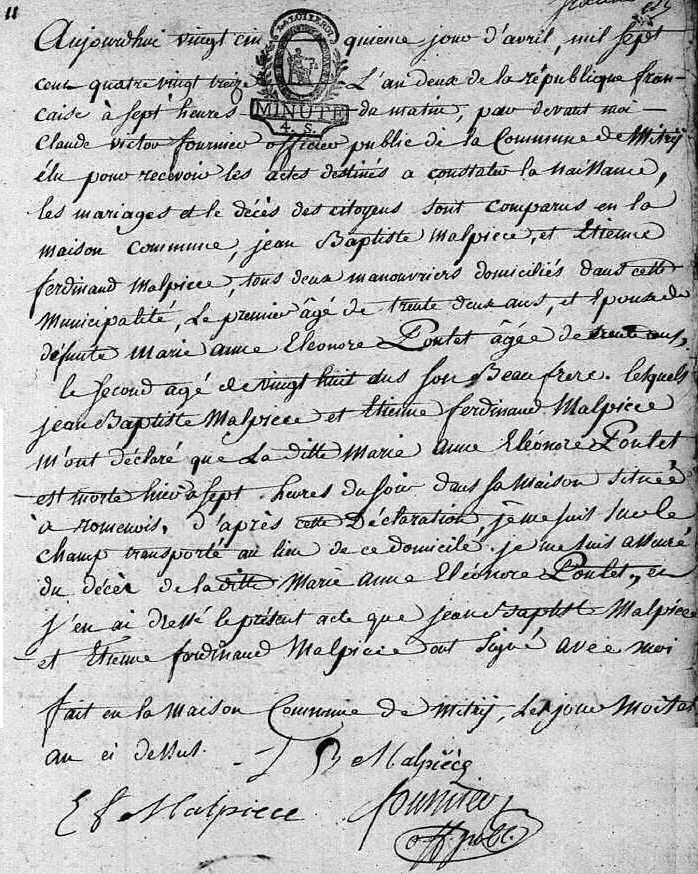 11
Aujourdhui vingt cin quieme jour d'avril, mil sept
cent quatre vingt treize L'an deux de la république fran
caise à sept heures du matin, par devant moi
Claude victor fournier officier public de la Commune de Mitry
élu pour recevoir les actes destinés a constater la naissance,
les mariages et le décès des citoyens sont comparus en la
maison commune, jean Baptiste Malpiece, et Etienne
ferdinand Malpiece, tous deux manouvriers domiciliés dans cette
Municipalité, Le premier âgé de trente deux ans, et Epoux de
défunte Marie anne Eleonore Poulet âgée de trente ans,
le second agé de vingt huit ans son Beaufrere. lesquels
jean Baptiste Malpiece et Etienne ferdinand Malpiece
m'ont déclaré que La ditte Marie anne Eléonore Poulet
est morte hier à sept heures du soir dans sa Maison située
à d'après cette Déclaration, je me suis sur le
champ transporté au lieu de ce domicile. je me suis assuré
du décès de la ditte Marie anne Eléonore Poulet, et
j'en ai dressé le présent acte que jean Baptiste Malpiece
et Etienne ferdinand Malpiece ont signé avec moi
fait en la Maison Commune de Mitry, Les jour Mois et
an ci dessus.
MINUTE
4. S.
J B Malpièce
E f Malpiece
fournier
off. publ.